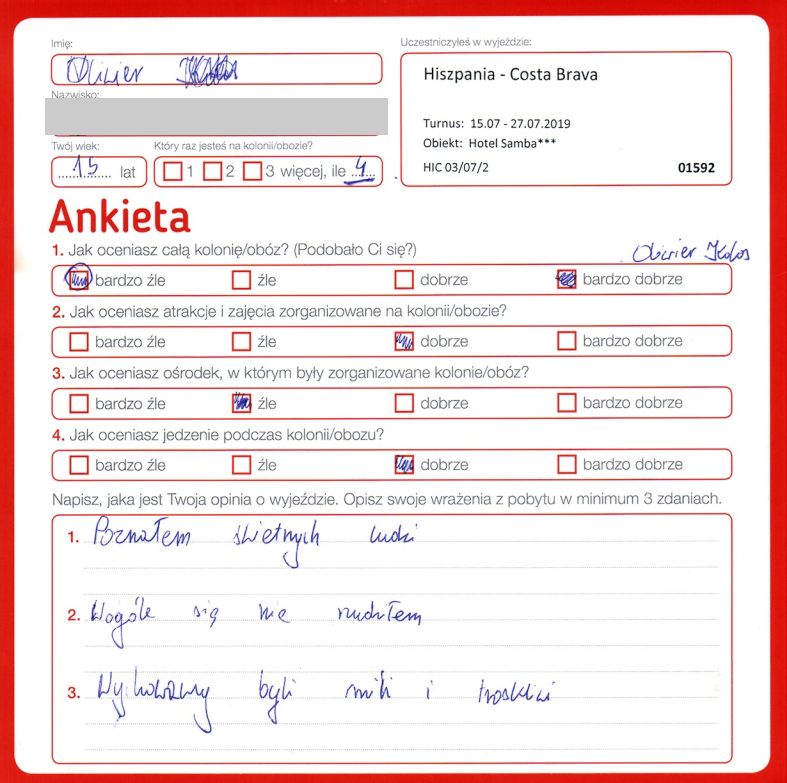 Imię:
Uczestniczyłeś w wyjeździe:
Oliwier
Hiszpania - Costa Brava
Nazwisko:
Turnus: 15.07 - 27.07.2019
Obiekt: Hotel Samba***
HIC 03/07/2 01592
Twój wiek:
Który raz jesteś na kolonii/obozie?
15 lat
1 2 3 więcej, ile 4
Ankieta
1. Jak oceniasz całą kolonię/obóz? (Podobało Ci się?)
Oliwier
bardzo źle źle dobrze bardzo dobrze
2. Jak oceniasz atrakcje i zajęcia zorganizowane na kolonii/obozie?
bardzo źle źle dobrze bardzo dobrze
3. Jak oceniasz ośrodek, w którym były zorganizowane kolonie/obóz?
bardzo źle źle dobrze bardzo dobrze
4. Jak oceniasz jedzenie podczas kolonii/obozu?
bardzo źle źle dobrze bardzo dobrze
Napisz, jaka jest Twoja opinia o wyjeździe. Opisz swoje wrażenia z pobytu w minimum 3 zdaniach.
1. Poznałem świetnych ludzi
2. Wogóle się nie nudziłem
3. Wychowawcy byli mili i troskliwi